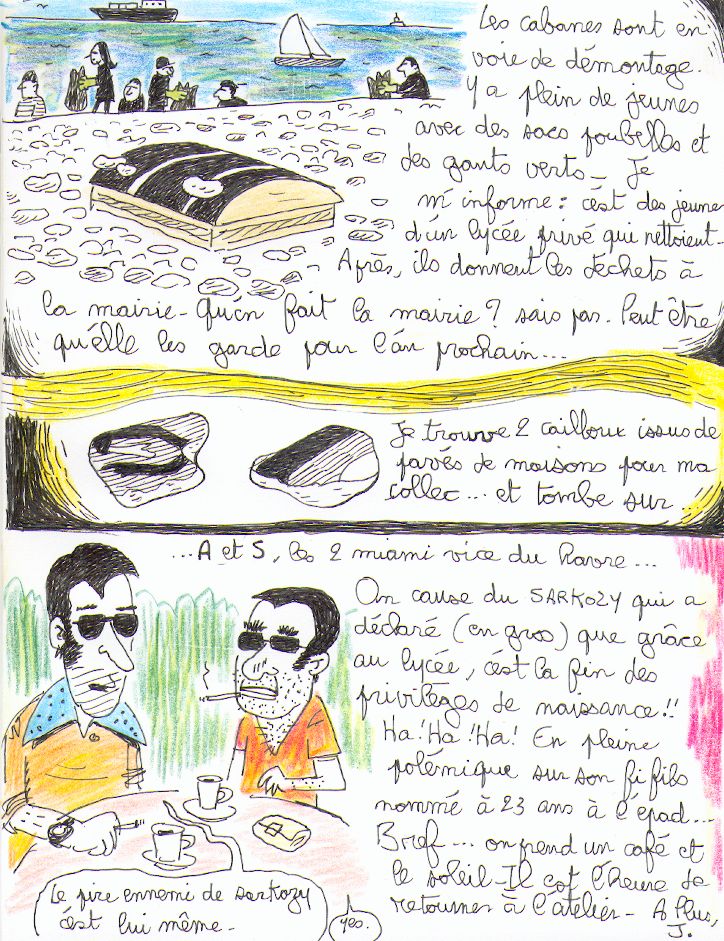 Les cabanes sont en
voie de démontage.
Y a plein de jeunes
avec des sacs poubelles et
des gants verts_ Je
m'informe : c'est des jeunes
d'un lycée privé qui nettoient_
Après, ils donnent les déchets à
la mairie_ Qu'en fait la mairie ? sais pas. Peut être
qu'elle les garde pour l'an prochain...
Je trouve 2 cailloux issus de
pavés de maisons pour ma
collec... et tombe sur
...A et S, les 2 miami vice du havre...
On cause du SARKOZY qui a
déclaré (en gros) que grâce
au lycée, c'est la fin des
privilèges de naissance !!
Ha ! Ha ! Ha ! En pleine
polémique sur son fi fils
nommé à 23 ans à l'épad...
Bref... on prend un café et
le soleil_ Il est l'heure de
retourner à l'atelier_ A Plus,
J.
Le pire ennemi de Sarkozy
c'est lui même_
yes.